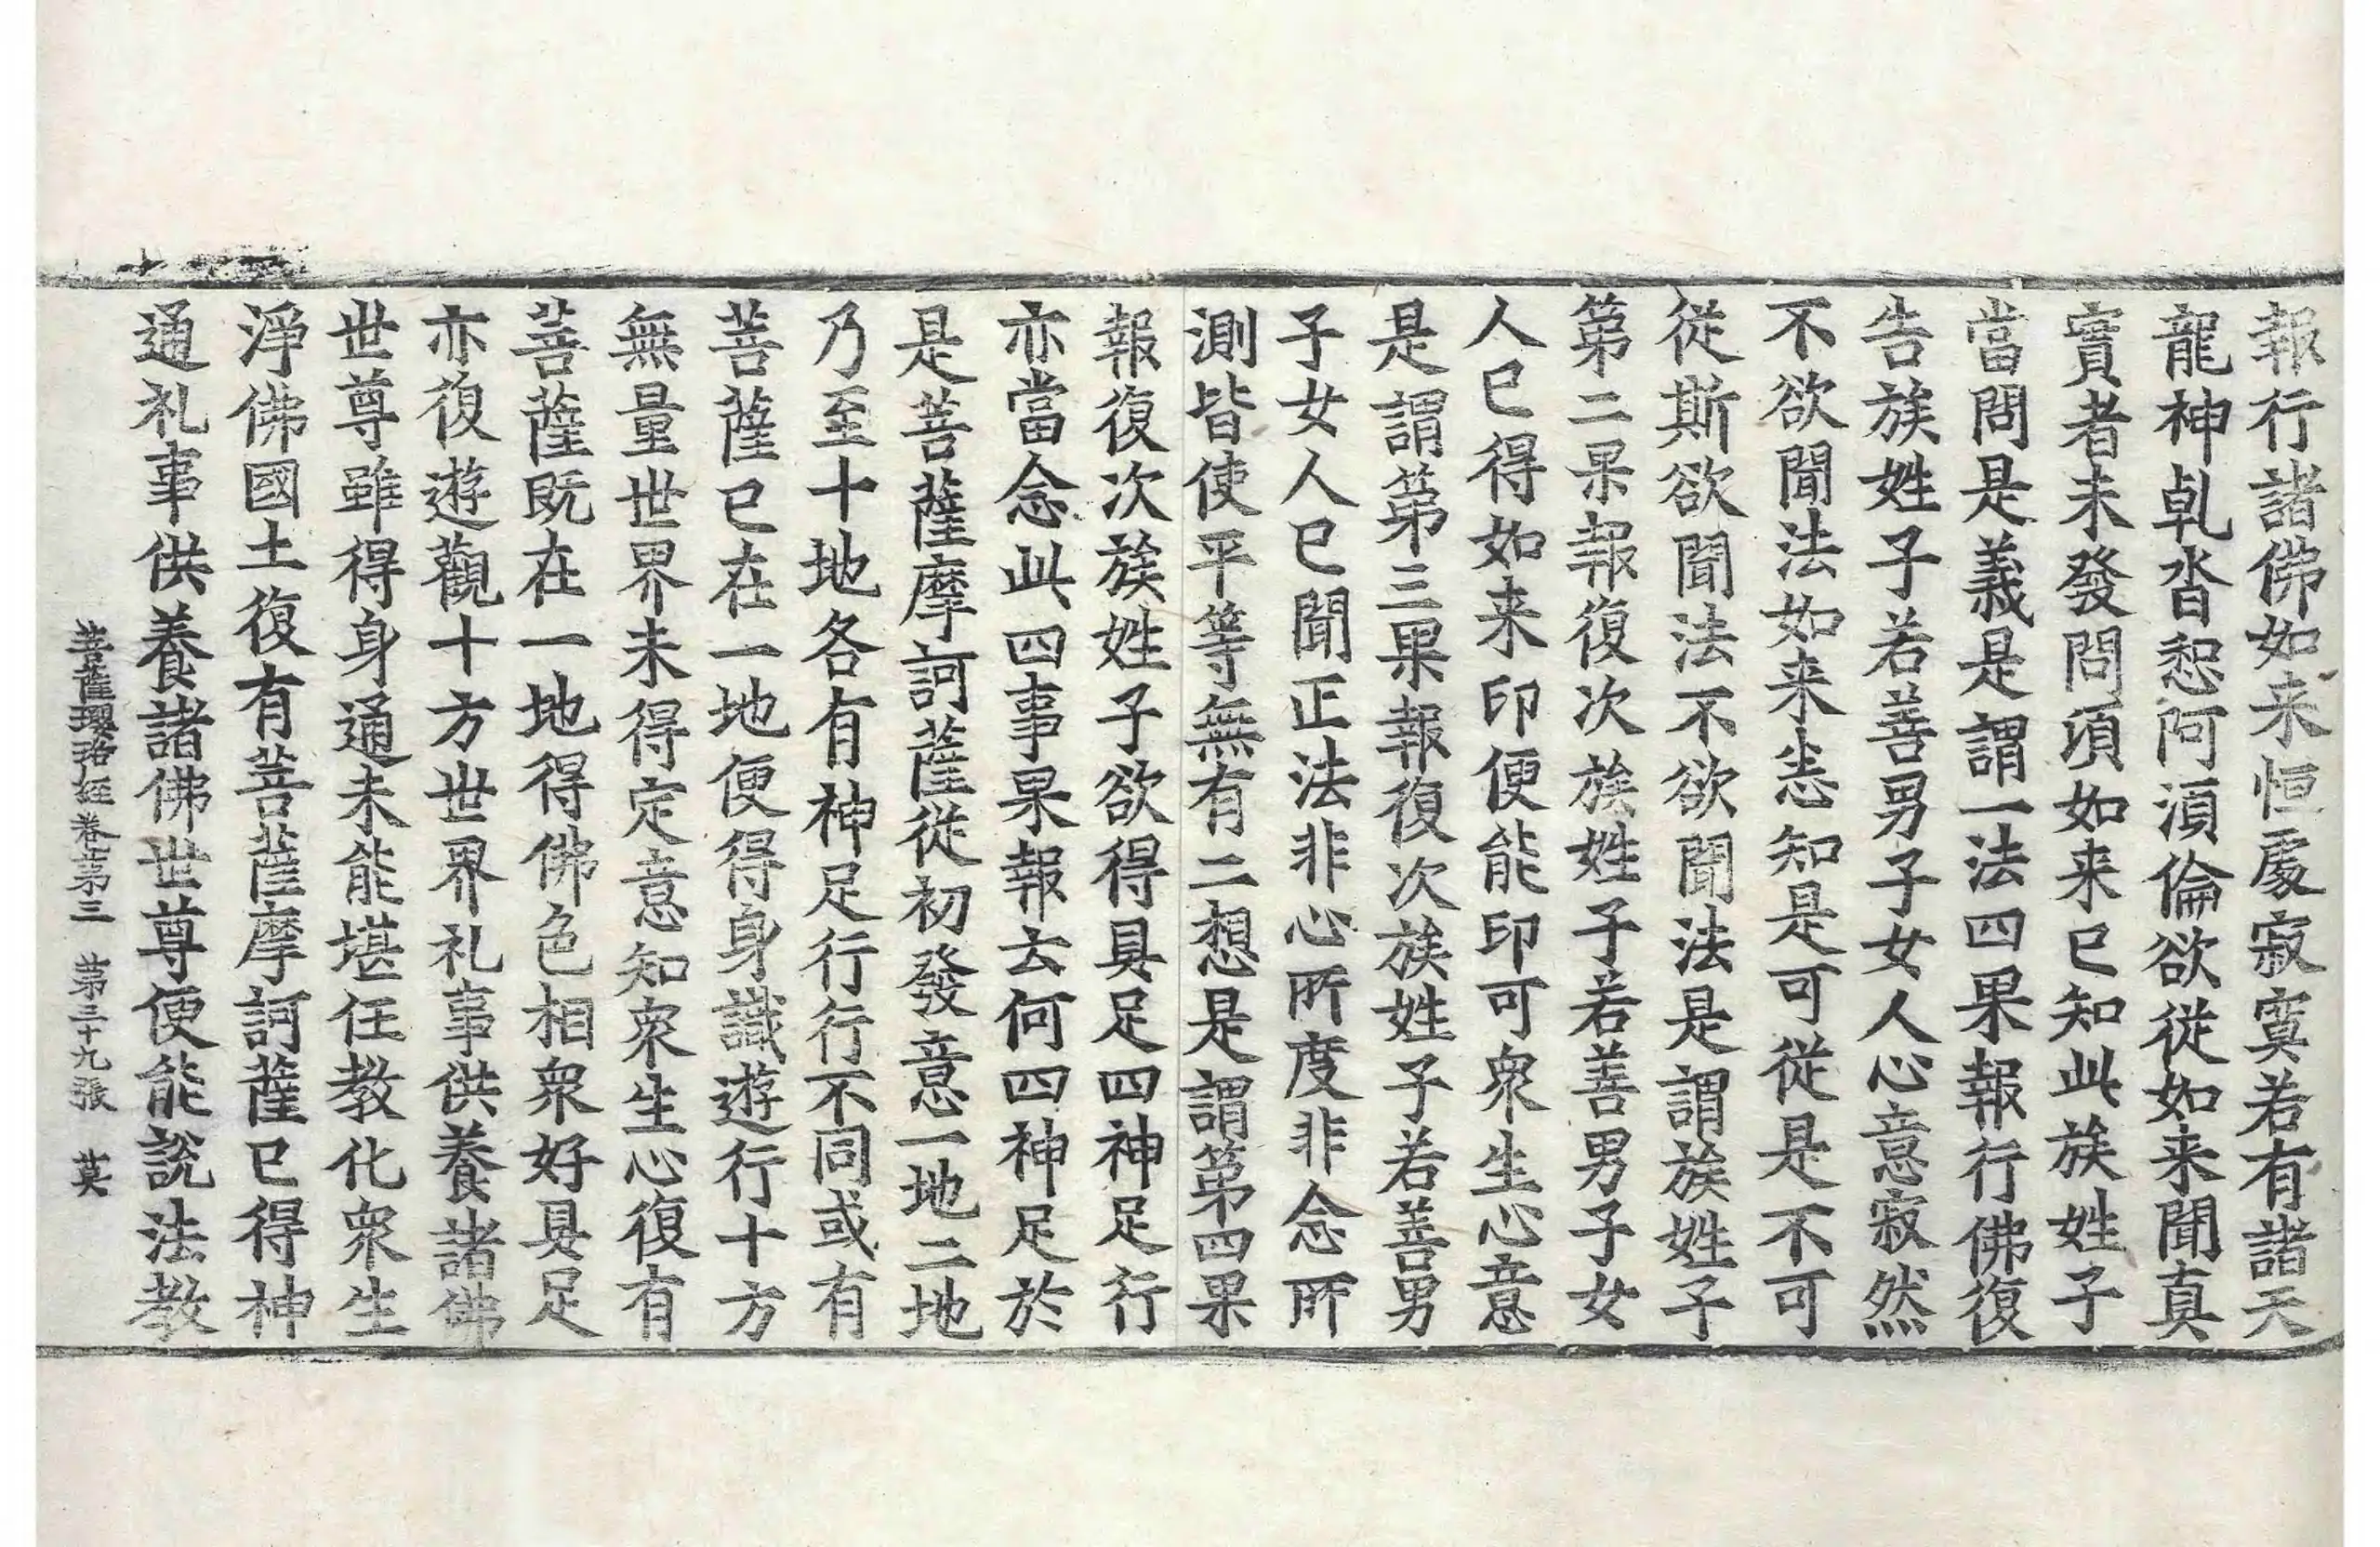 報行諸佛如来恒處寂寞若有諸天
龍神乹沓惒阿湏倫欲從如来聞真
實者未發問頃如来已知此族姓子
當問是義是謂一法四果報行佛復
告族姓子若善男子女人心意寂然
不欲聞法如来悉知是可從是不可
從斯欲聞法不欲聞法是謂族姓子
第二果報復次族姓子若善男子女
人已得如来印便能印可衆生心意
是謂第三果報復次族姓子若善男
子女人已聞正法非心所度非念所
測皆使平等無有二想是謂第四果
報復次族姓子欲得具足四神足行
亦當念此四事果報云何四神足於
是菩薩摩訶薩從初發意一地二地
乃至十地各有神足行行不同或有
菩薩已在一地便得身識遊行十方
無量世界未得定意知衆生心復有
菩薩既在一地得佛色相衆好具足
亦復遊觀十方世界礼事供養諸佛
世尊雖得身通未能堪任教化衆生
淨佛國土復有菩薩摩訶薩已得神
通礼事供養諸佛世尊便能說法教
菩薩瓔珞經卷第三　第三十九張　莫